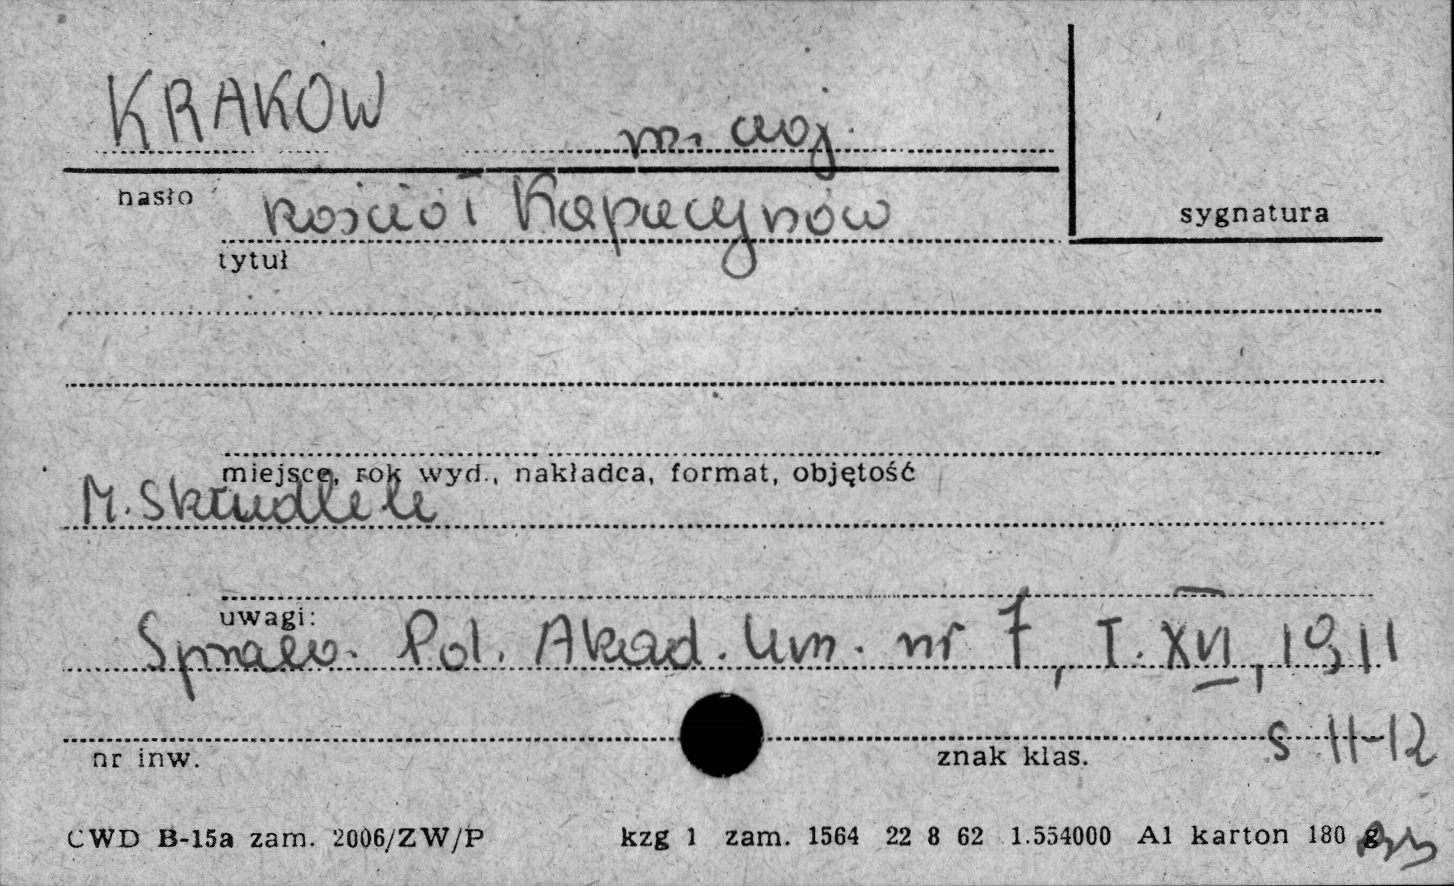 KRAKÓW m. woj.
hasło
kościół Kapucynów
sygnatura
tytuł
miejsce, rok wyd., nakładca, format, objętość
M. Skrudlik
uwagi:
Spraw. Pol. Akad. Um. nr 7, T. XVI, 1911
s 11-12
nr inw. znak klas.
CWD B-15a zam. 2006/ZW/P kzg 1 zam. 1564 22 8 62 1.554000 A1 karton 180 g